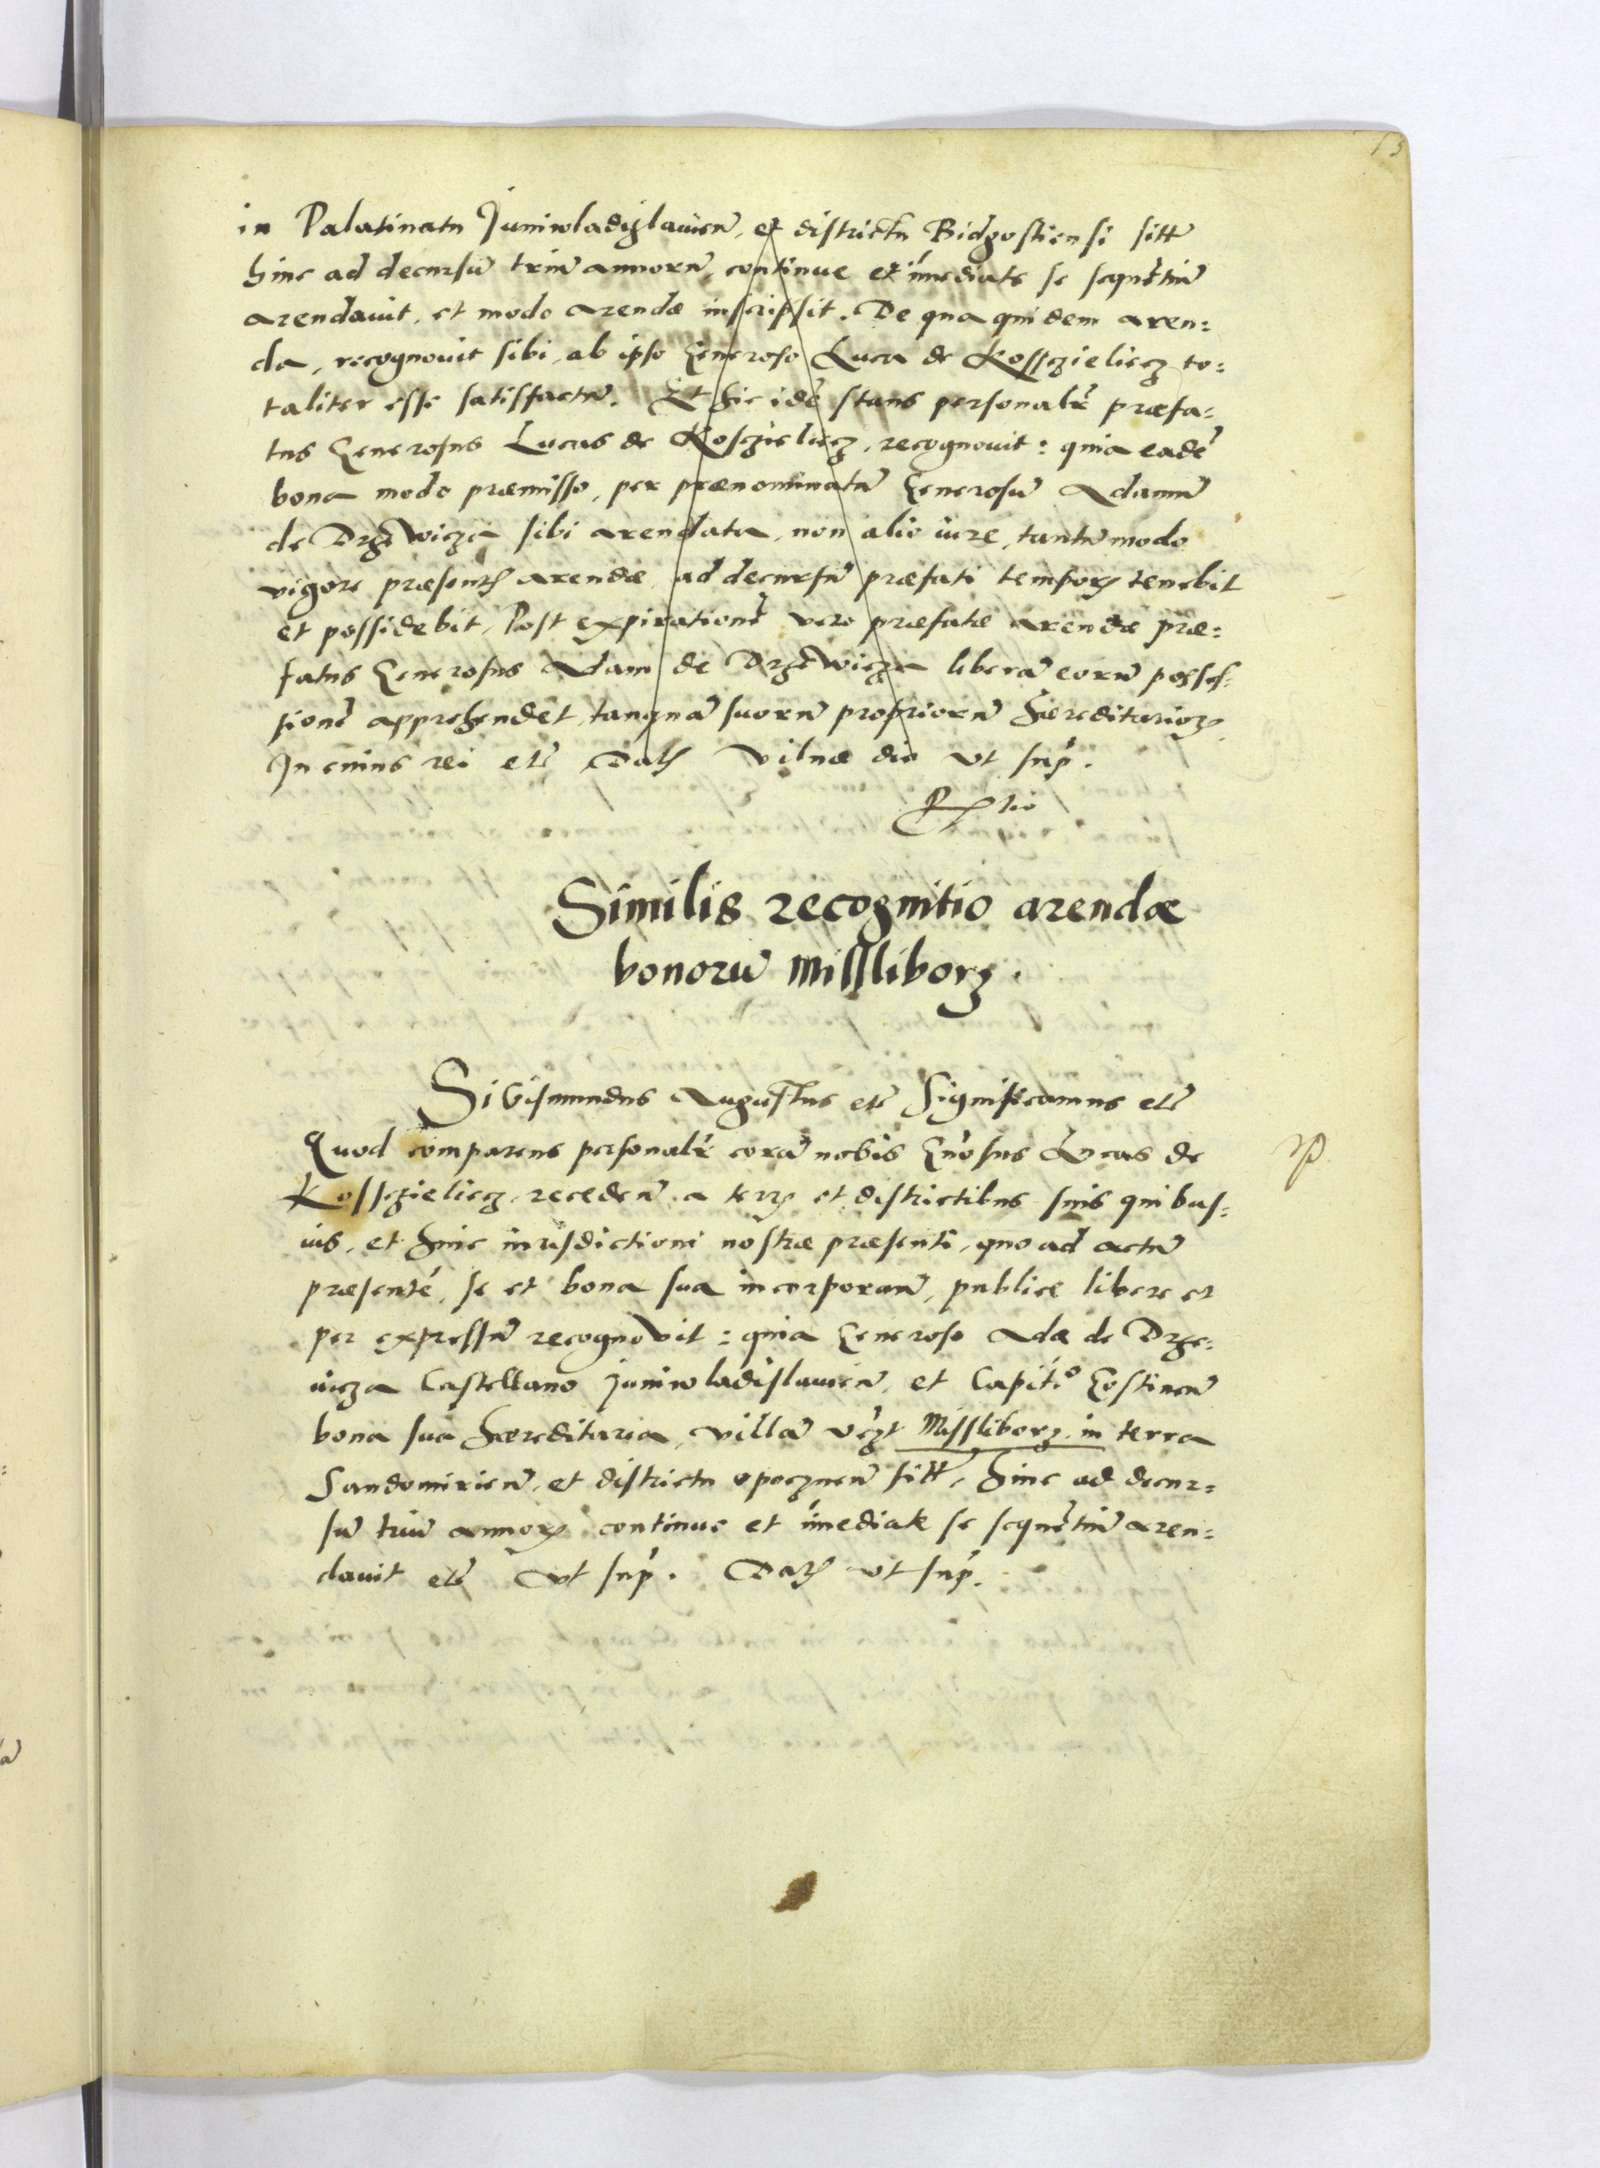 13
in Palatinatu Juniwladislauien̄, et districtu Bidgostiensi sitt̄
hinc ad decursū triū annorū, continue et īmediate se sequētiū
arendauit, et modo arendæ inscripsit. De qua quidem aren:
da, recognouit sibi, ab ipso Generoso Luca de Kossczieliecz to:
taliter esse satisfactū. Et hic idē stans personalr̄ præfa:
tus Generosus Lucas de Kosczieliecz, recognouit: quia eadē
bona modo præmisso, per prænominatū Generosū Adamū
de Drzewicza sibi arendata, non alio iure, tantū modo
vigore præsentꝭ arendæ, ad decursū præfati temporꝭ tenebit
et possidebit, Post expirationē vero præfatæ arendæ præ:
fatus Generosus Adam de Drzewicza liberā eorū posses:
sionē apprehendet, tanquā suorū propriorū hæreditarioꝝ
In cuius rei etc̄ Datꝭ Vilnæ die vt sup̄.
Simili̇s recognitio arendæ
bonorū Missliborz.
Sigismundus Augustus etc̄ Significamus etc̄
Quod comparens personalr̄ corā nobis Gn̄osus Lucas de
Kossczieliecz, receden̄ a terrꝭ et districtibus suis quibus:
uis, et huic iurisdictioni nostræ præsenti, quo ad actū
præsentē, se et bona sua incorporan̄, publice libere et
per expressū recognovit: quia Generoso Adæ de Drze:
uicza Castellano Juniwladislauien̄, et Capitᵒ Gostinen̄
bona sua hæreditaria, villā vczt Missliborz in terra
Sandomirien̄, et districtu opocznen̄ sitt̄, hinc ad decur:
sū triū annoꝝ continue et īmediate se sequētiū aren:
dauit etc̄ vt sup̄. Datꝭ vt sup̄.